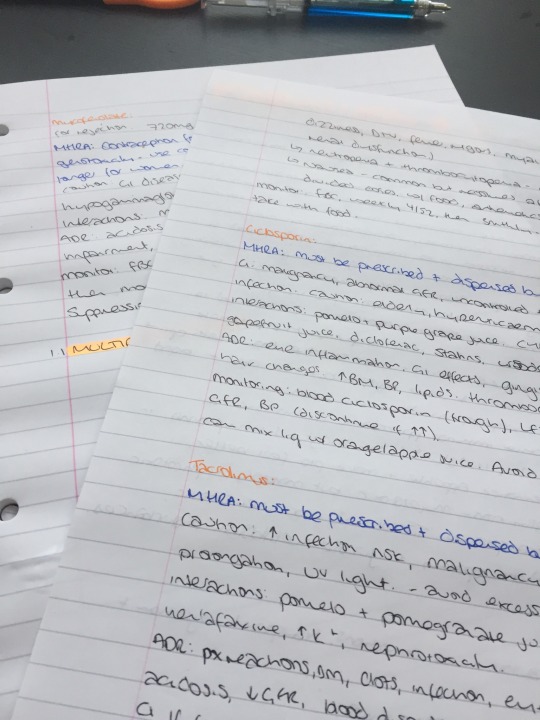 Mycophenolate:
for rejection 720mg
MHRA: contraception f
genotoxic. use c
longer for women
caution: GI diseas
hypogammag
interactions: m
ADR: acidosis
impairment,
monitor: FBC
then mo
suppressi
11 MULTI
dizziness, fever,
renal dysfunction)
↳ neutropenia + thrombocytopenia.
↳ nausea - common but
divided doses, w/ food,
monitor: FBC, weekly 4/52, then
take with food.
Ciclosporin:
MHRA: must be prescribed + dispensed b
CI: malignancy, abnormal GFR, uncontrolled
infection. caution: elderly, hyperuricaem
interactions: pomelo + purple grape juice,
grapefruit juice, diclofenac, statins,
ADR: eye inflammation, GI effects, ging
hair changes, ↑BM, BP, lipids. thrombo
monitoring: blood ciclosporin (trough), LF
GFR, BP (discontinue if ↑↑)
can mix liq w/ orange/apple juice. Avoid
Tacrolimus:
MHRA: must be prescribed + dispensed b
caution: ↑ infection risk, malignancy
prolongation, UV light. - avoid excess
interactions: pomelo + pomegranate ju
venlafaxine, ↑K⁺, nephrotoxic.
ADR: px reactions, DM, clots, infection,
acidosis, ↓GFR, blood d